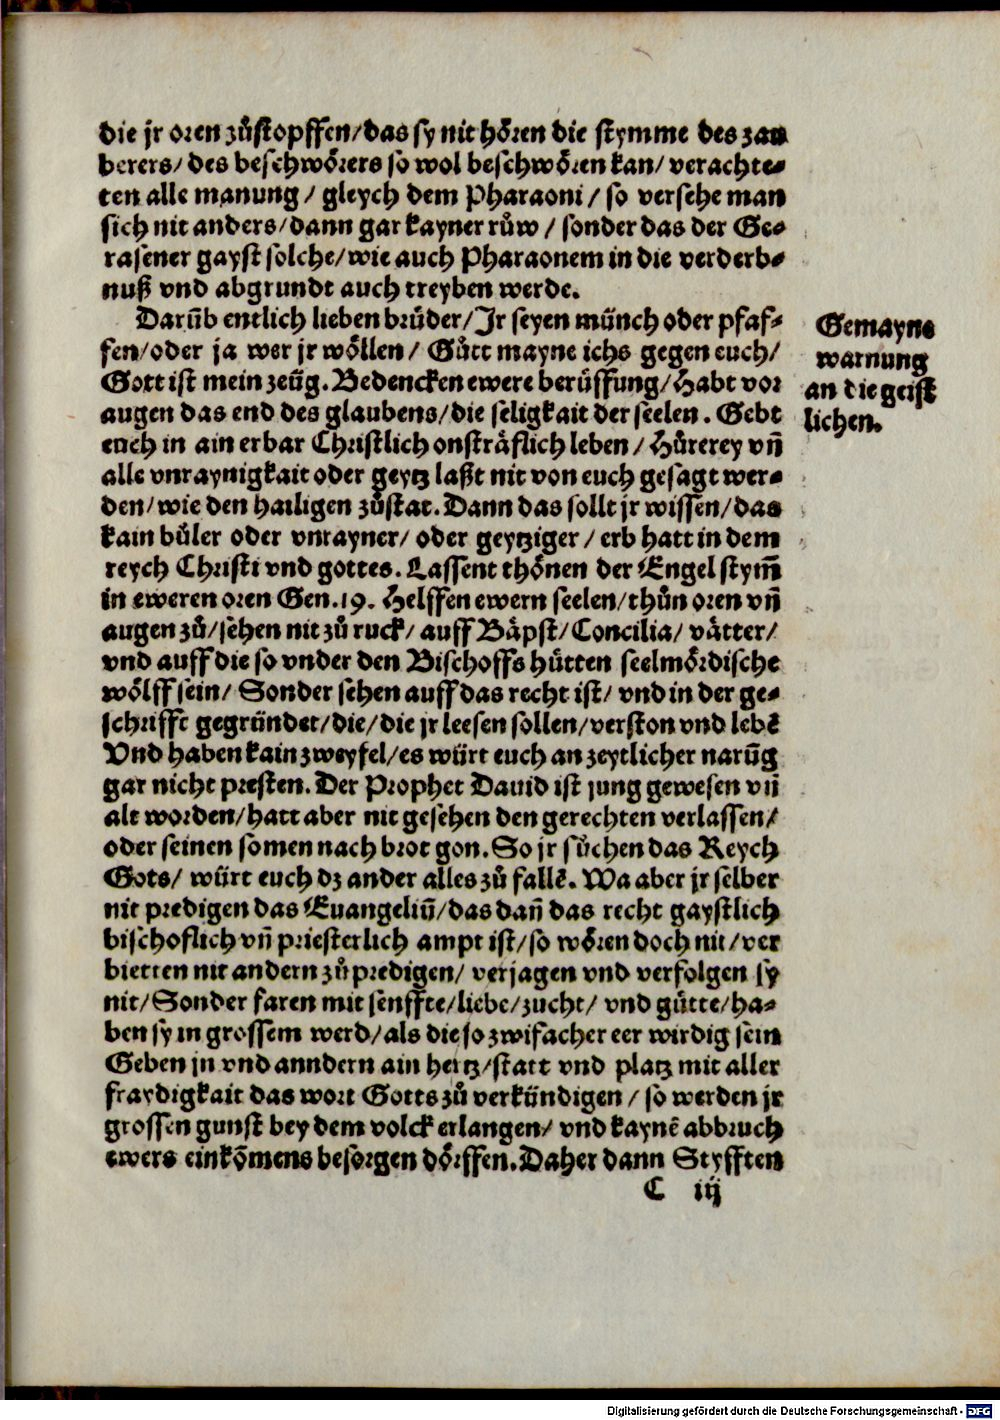 die jr oren zůstopffen/das sy nit hören die stymme des zau
berers/ des beschwörers so wol beschwören kan/ verachte-
ten alle manung / gleych dem Pharaoni / so versehe man
sich nit anders/dann gar kayner růw / sonder das der Ge-
rasener gayst solche/wie auch Pharaonem in die verderb-
nuß vnd abgrundt auch treyben werde.
Darũb entlich lieben brüder/Jr seyen münch oder pfaf-
fen/oder ja wer jr wöllen/ Gůtt mayne ichs gegen euch/
Gott ist mein zeüg. Bedencken ewere berüffung/Habt vor
augen das end des glaubens/die seligkait der seelen. Gebt
euch in ain erbar Christlich onsträflich leben/ Hůrerey vñ
alle vnraynigkait oder geytz laßt nit von euch gesagt wer-
den/wie den hailigen zůstat. Dann das sollt jr wissen/das
kain bůler oder vnrayner/ oder geytziger/ erb hatt in dem
reych Christi vnd gottes. Lassent thönen der Engel stym̃
in eweren oren Gen.19. Helffen ewern seelen/thůn oren vñ
augen zů/sehen nit zů ruck/ auff Bäpst/Concilia/ vätter/
vnd auff die so vnder den Bischoffs hütten seelmördische
wölff sein/ Sonder sehen auff das recht ist/ vnd in der ge-
schrifft gegründet/die/die jr leesen sollen/verston vnd lebẽ
Vnd haben kain zweyfel/es würt euch an zeytlicher narũg
gar nicht presten. Der Prophet Dauid ist jung gewesen vñ
alt worden/hatt aber nit gesehen den gerechten verlassen/
oder seinen somen nach brot gon. So jr sůchen das Reych
Gots/ würt euch dz ander alles zů fallẽ. Wa aber jr selber
nit predigen das Euangeliũ/das dañ das recht gaystlich
bischoflich vñ priesterlich ampt ist/so wören doch nit/ver
bietten nit andern zů predigen/ verjagen vnd verfolgen sy
nit/Sonder faren mit senffte/liebe/zucht/ vnd gütte/ha-
ben sy in grossem werd/als die so zwifacher eer wirdig sein
Geben jn vnd anndern ain hertz/statt vnd platz mit aller
fraydigkait das wort Gotts zů verkündigen / so werden jr
grossen gunst bey dem volck erlangen/ vnd kaynẽ abbruch
ewers einkõmens besorgen dörffen. Daher dann Styfften
C iij
Gemayne
warnung
an die geist
lichen.
Digitalisierung gefördert durch die Deutsche Forschungsgemeinschaft - DFG